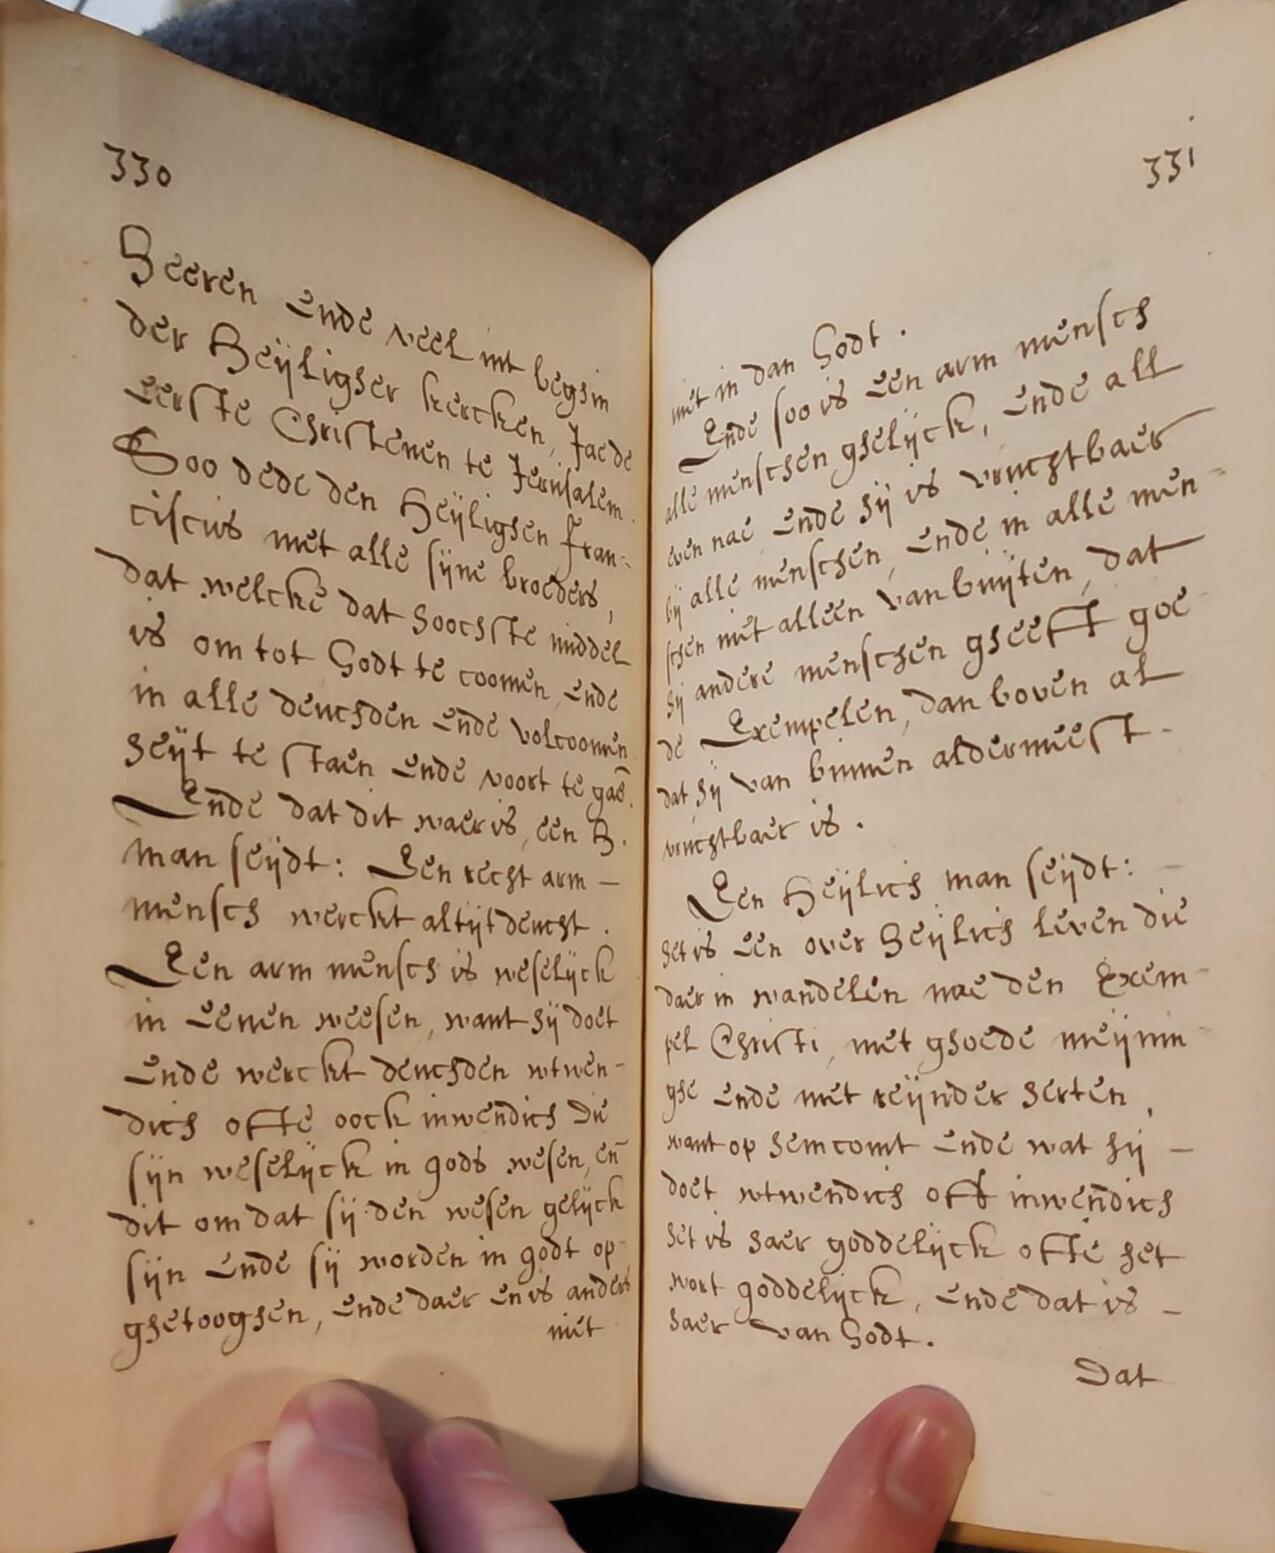 330
Heeren ende veel int beghin
der Heÿligher kercken, Jae de
eerste Christenen te Jerusalem.
Soo dede den Heÿlighen Fran-
ciscus met alle sÿne broeders,
dat welcke dat hoochste middel
is om tot Godt te coomen, ende
in alle deuchden ende volcoomen
heÿt te staen ende voort te gaē.
Ende dat dit waer is, een H.
man seÿdt: Een recht arm –
mensch werckt altÿt deucht.
Een arm mensch is weselÿck
in eenen weesen, want hÿ doet
ende werckt deuchden wtwen-
dich ofte oock inwendich die
sÿn weselÿck in gods wesen, eñ
dit om dat sÿ den wesen gelÿck
sÿn ende sÿ worden in godt op-
ghetooghen, ende daer en is anders
niet
331
niet in dan Godt.
Ende soo is een arm mensch
alle menschen ghelÿck, ende all
even nae ende hÿ is vruchtbaer
bÿ alle menschen, ende in alle men-
schen niet alleen van buÿten, dat
hÿ andere menschen gheeft goe-
de Exempelen, dan boven al
dat hÿ van binnen aldermeest –
vruchtbaer is.
Een Heÿlich man seÿdt: –
het is een over Heÿlich leven die
daer in wandelen nae den Exem-
pel Christi, met ghoede meÿnin-
ghe ende met reÿnder herten,
want op hem comt ende wat hÿ –
doet wtwendich oft inwendich
het is haer goddelÿck ofte het
wort goddelÿck, ende dat is –
haer van Godt.
Dat